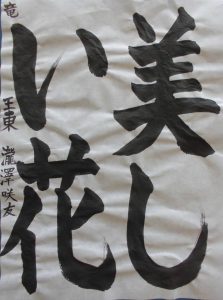 美し
い花
竜 王東 瀧澤咲友